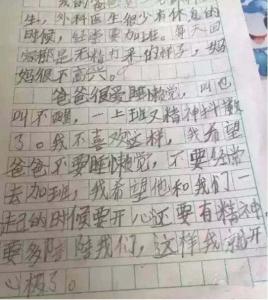 我的爸爸是一
生，外科医生很少有休息的
时候，经常要加班。每天回
都是无精打采的样子，妈
妈很不高兴。
爸爸很爱睡懒觉，叫也
叫不醒，一上班又精神抖擞
了。我不喜欢这样，我希望
爸爸不要睡懒觉，不要经常
去加班，我希望他和我们一
起的时候要开心还要有精神
要多陪陪我们，这样我就开
心极了。